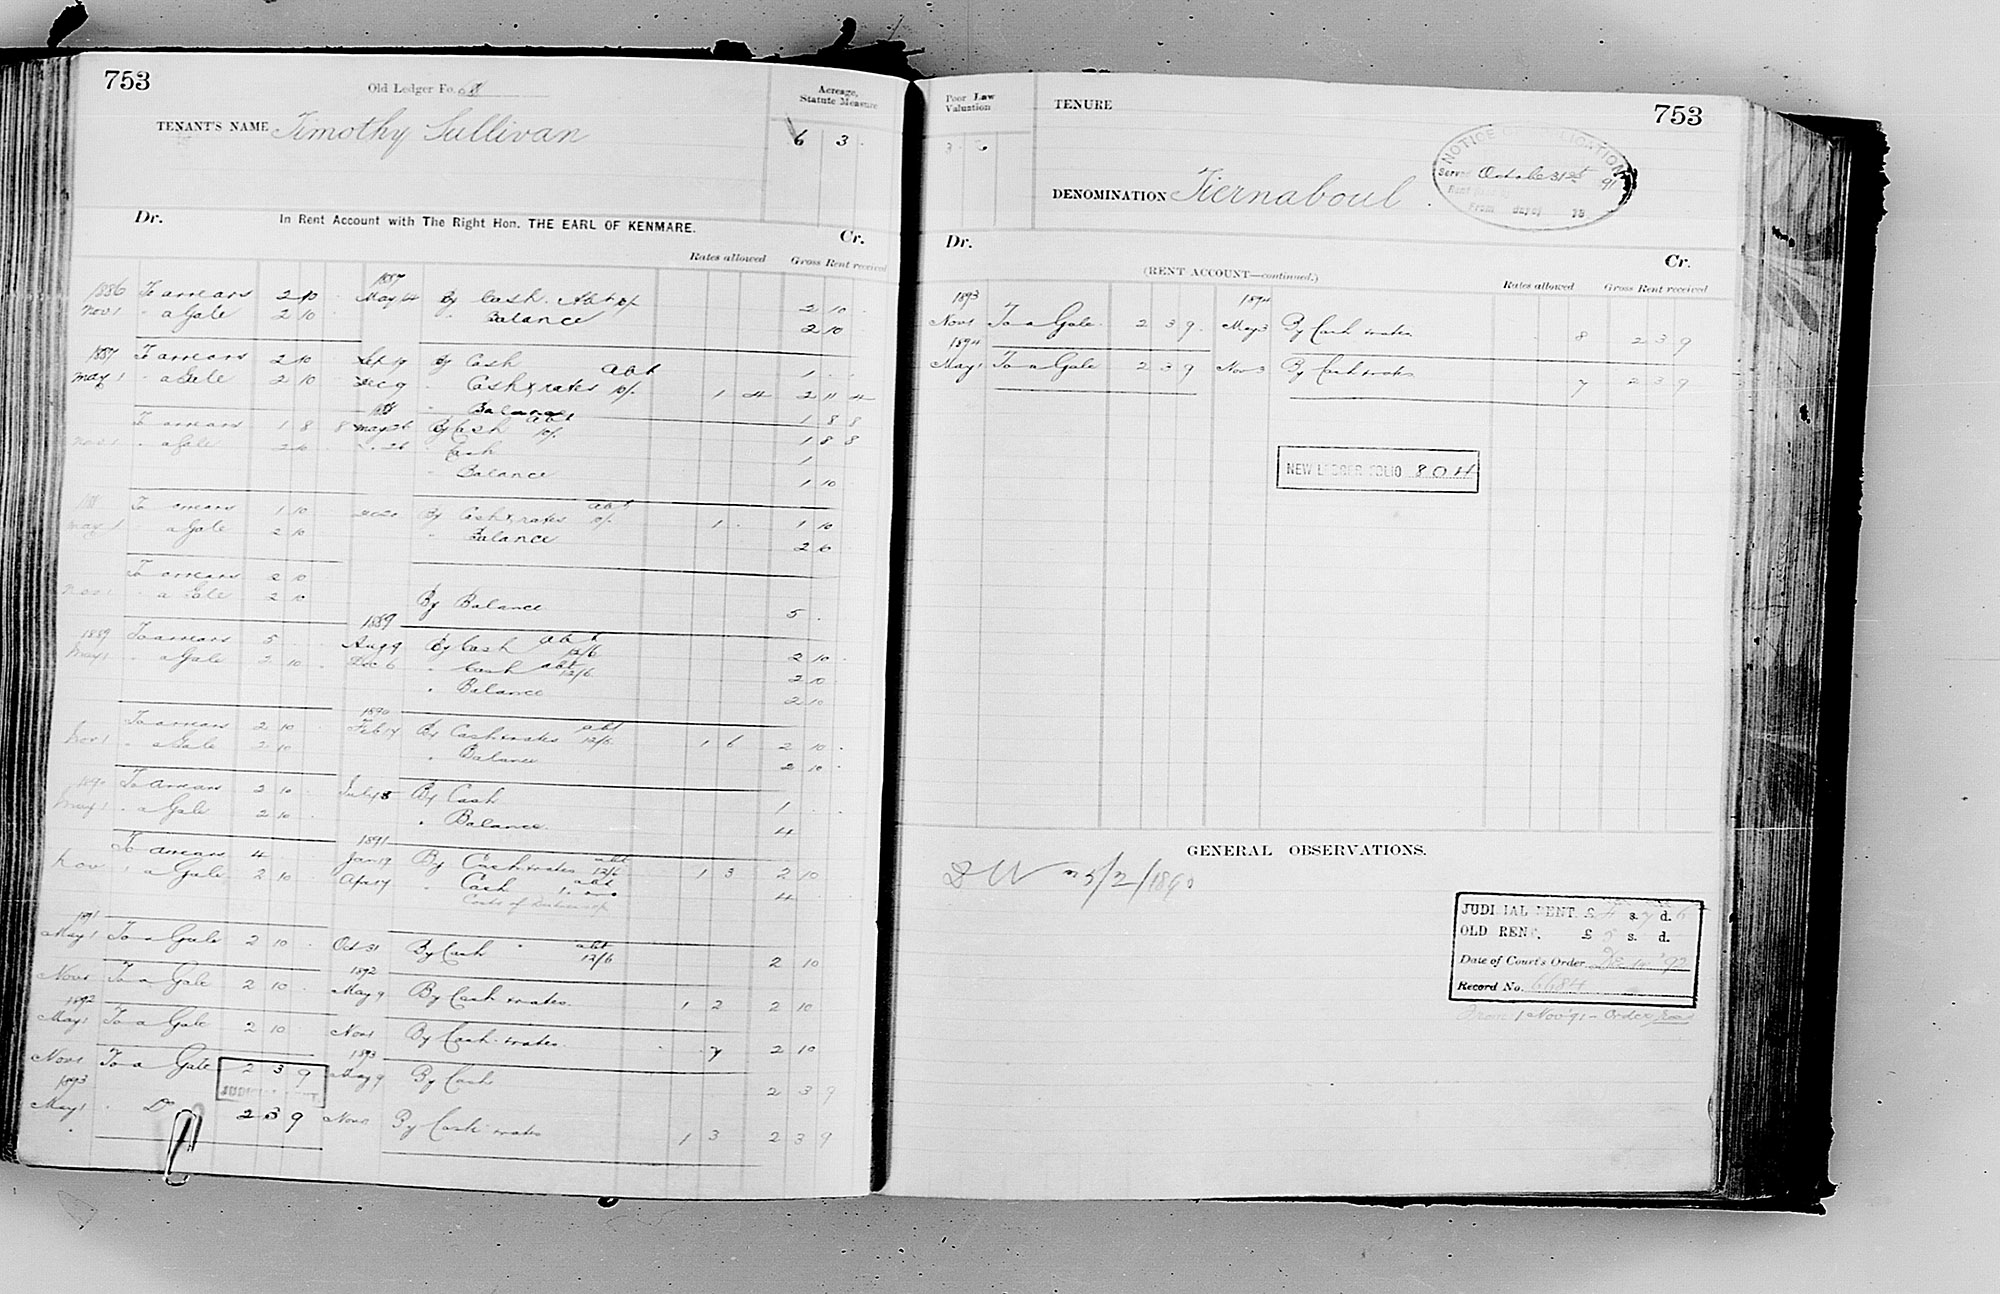 753
Old Ledger Fo.
Acreage, Statute Measure
TENANT'S NAME Timothy Sullivan
6 3
Dr. In Rent Account with The Right Hon. THE EARL OF KENMARE. Cr.
Rates allowed Gross Rent received
1887
1886 To arrears 2 10 May 14 By Cash Abt 10/. 2 10
Nov 1 " a Gale 2 10 " Balance 2 10
1887 To arrears 2 10 Sept 19 By Cash 1
May 1 " a Gale 2 10 Dec 9 " Cash & rates abt 10/. 1 4 2 11 4
" Balance 1 8 8
To arrears 1 8 8 May 26 By Cash abt 10/. 1 8 8
Nov 1 " a Gale 2 10 " 26 " Cash 1
" Balance 1 10
To arrears 1 10 By Cash & rates abt 10/. 1 1 10
May 1 " a Gale 2 10 " Balance 2 10
To arrears 2 10
Nov 1 " a Gale 2 10 By Balance 5
1889
1889 To arrears 5 Aug 9 By Cash abt 12/6 2 10
May 1 " a Gale 2 10 Dec 6 " Cash abt 12/6 2 10
" Balance 2 10
1890
To arrears 2 10 Feb 17 By Cash & rates abt 12/6 1 6 2 10
Nov 1 " a Gale 2 10 " Balance 2 10
1890 To arrears 2 10 July 8 By Cash 1
May 1 " a Gale 2 10 " Balance 4
1891
To arrears 4 Jan 19 By Cash & rates abt 12/6 1 3 2 10
Nov 1 " a Gale 2 10 Apr 17 " Cash abt 4
Costs of
1891
May 1 To a Gale 2 10 Oct 31 By Cash " abt 12/6 2 10
1892
Nov 1 To a Gale 2 10 May 9 By Cash & rates 1 2 2 10
1892
May 1 To a Gale 2 10 Nov 1 By Cash & rates 7 2 10
1893
Nov 1 To a Gale 2 3 9 May 9 By Cash 2 3 9
1893
May 1 " Do 2 3 9 Nov By Cash & rates 1 3 2 3 9
Poor Law Valuation
TENURE
753
NOTICE OF APPLICATION
Served October 31st 91
Rent
From day of 18
DENOMINATION Tiernaboul
Dr. Cr.
(RENT ACCOUNT—continued.)
Rates allowed Gross Rent received
1893 1894
Nov 1 To a Gale 2 3 9 May 3 By Cash & rates 8 2 3 9
1894
May 1 To a Gale 2 3 9 Nov 3 By Cash & rates 7 2 3 9
NEW LEDGER FOLIO 804
GENERAL OBSERVATIONS.
JUDICIAL RENT. £ 4 s. 7 d. 6
OLD RENT. £ 5 s. d.
Date of Court's Order '92
Record No. 6684
From 1 Nov '91 - Order